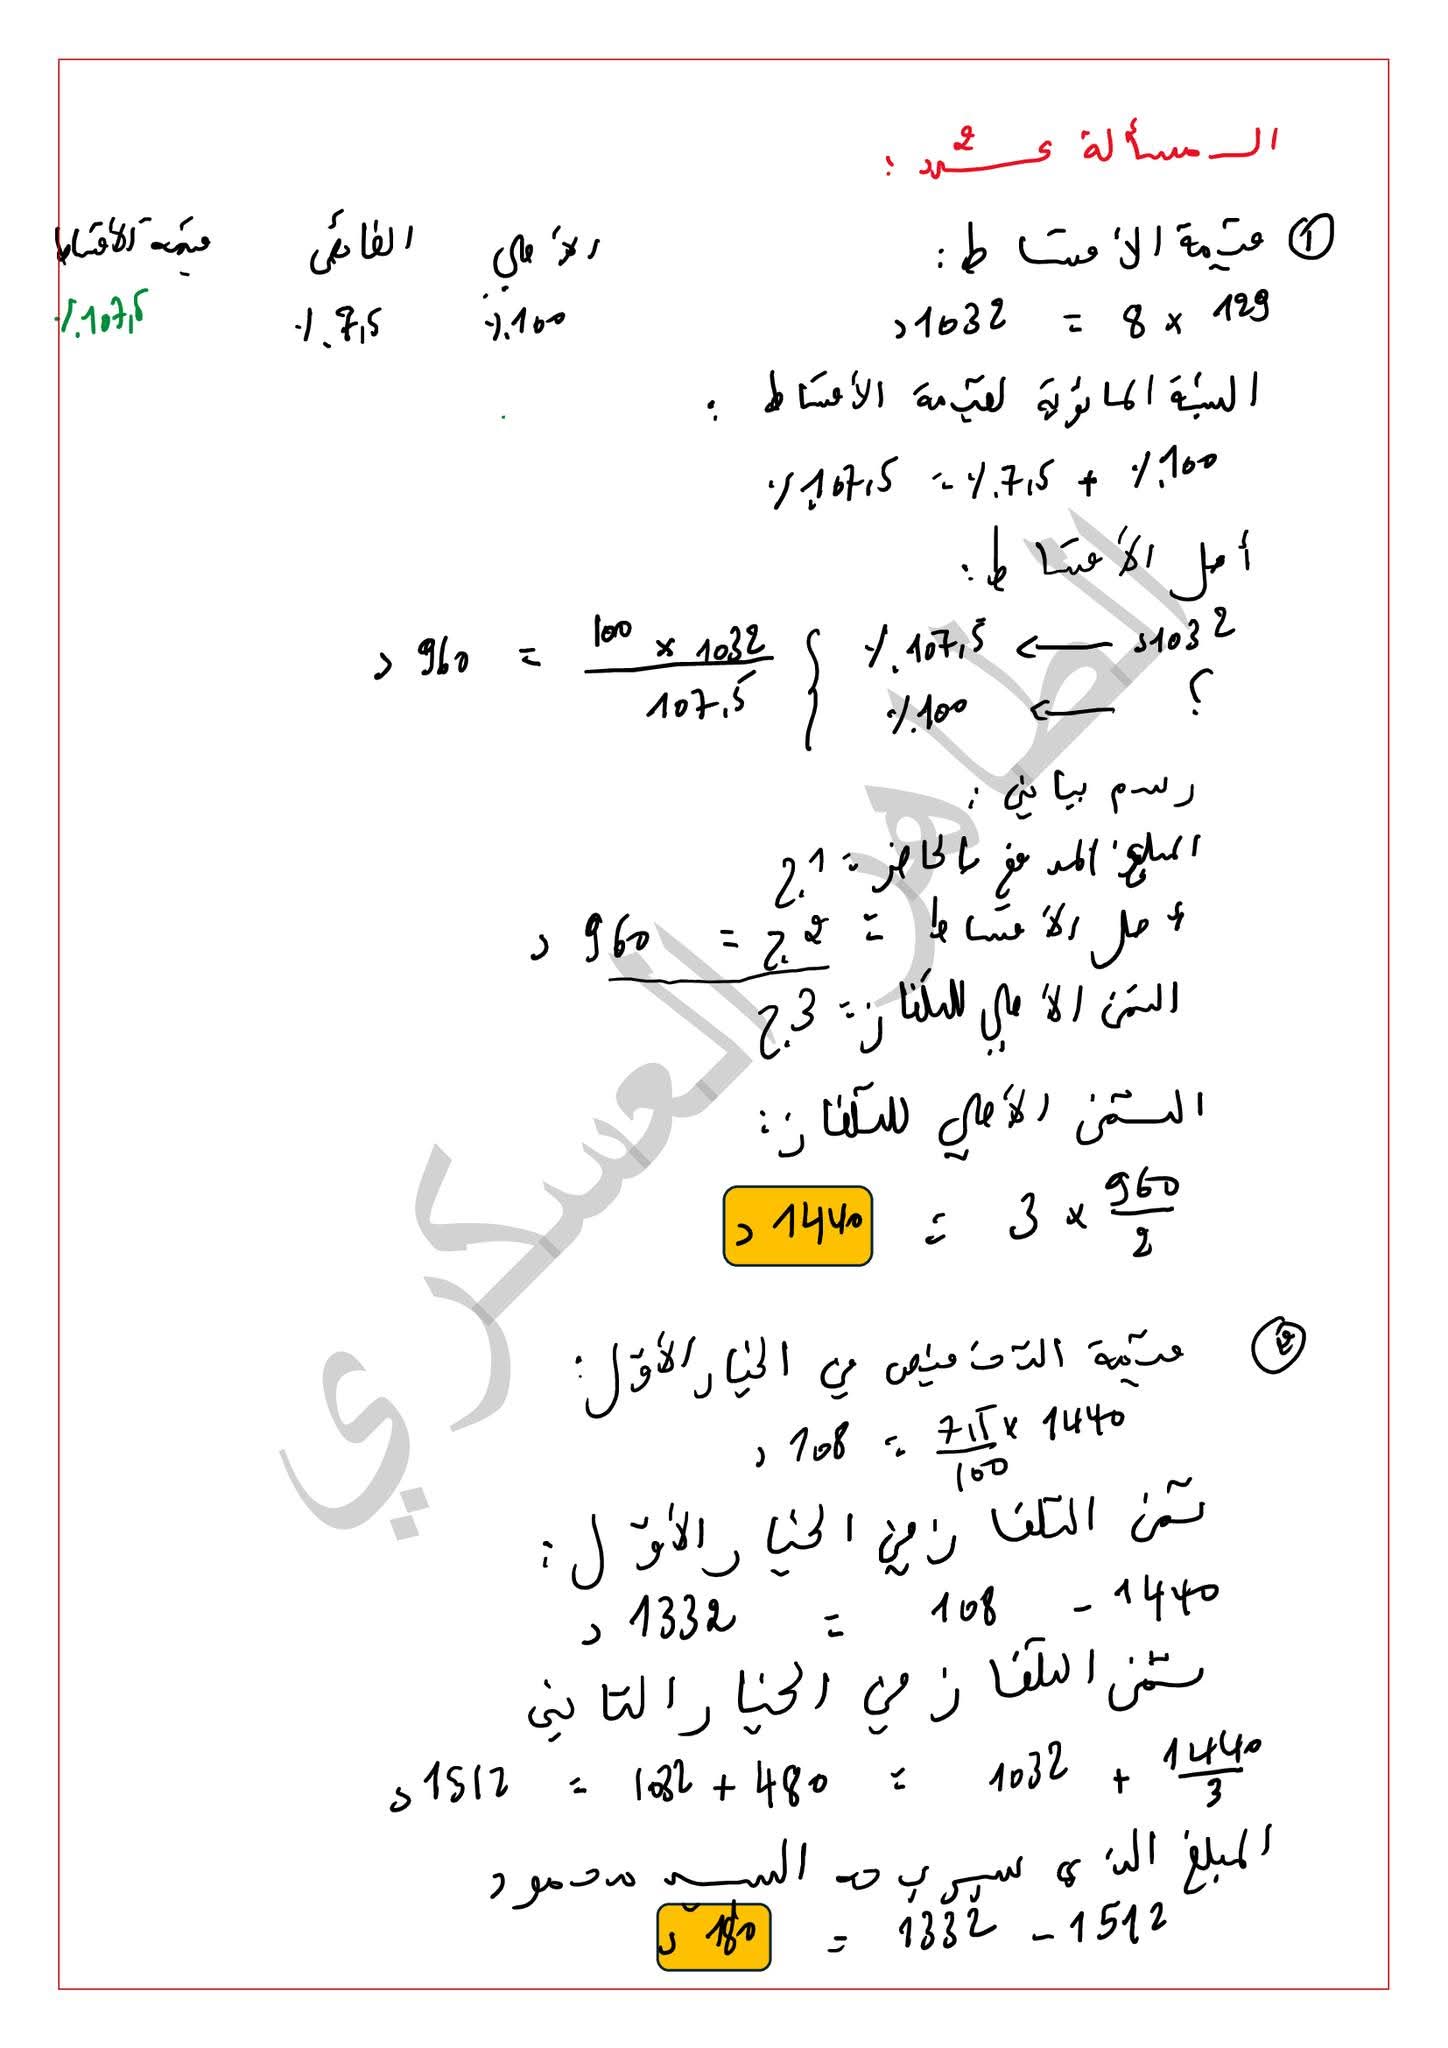 المسألة عـ2ـدد :
① قيمة الأقساط :
129 × 8 = 1032د
الأصلي الفائض قيمة الأقساط
100٪ 7,5٪ 107,5٪
النسبة المائوية لقيمة الأقساط :
100٪ + 7,5٪ = 107,5٪
أصل الأقساط :
1032د ← 107,5٪
؟ ← 100٪
100 × 1032 / 107,5 = 960 د
رسم بياني :
المبلغ المدفوع بالحاضر = 1 ج
أصل الأقساط = 2 ج = 960 د
الثمن الأصلي للتلفاز = 3 ج
الثمن الأصلي للتلفاز :
960/2 × 3 = 1440 د
② قيمة التخفيض في الخيار الأول :
1440 × 7,5/100 = 108 د
ثمن التلفاز في الخيار الأول :
1440 - 108 = 1332 د
ثمن التلفاز في الخيار الثاني
1440/3 + 1032 = 480 + 1032 = 1512 د
المبلغ الذي سيربحه السيد محمود
1512 - 1332 = 180 د
الطاهر العسكري